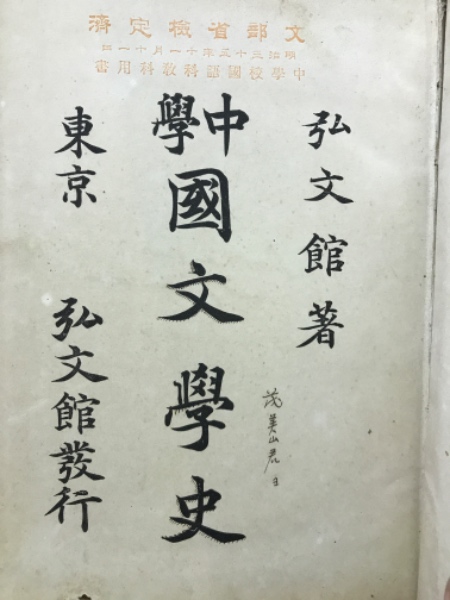 文部省檢定濟
明治三十三年十一月十一日
中學校國語科教科用書
弘文館著
中學
國文學史
東京
弘文館發行